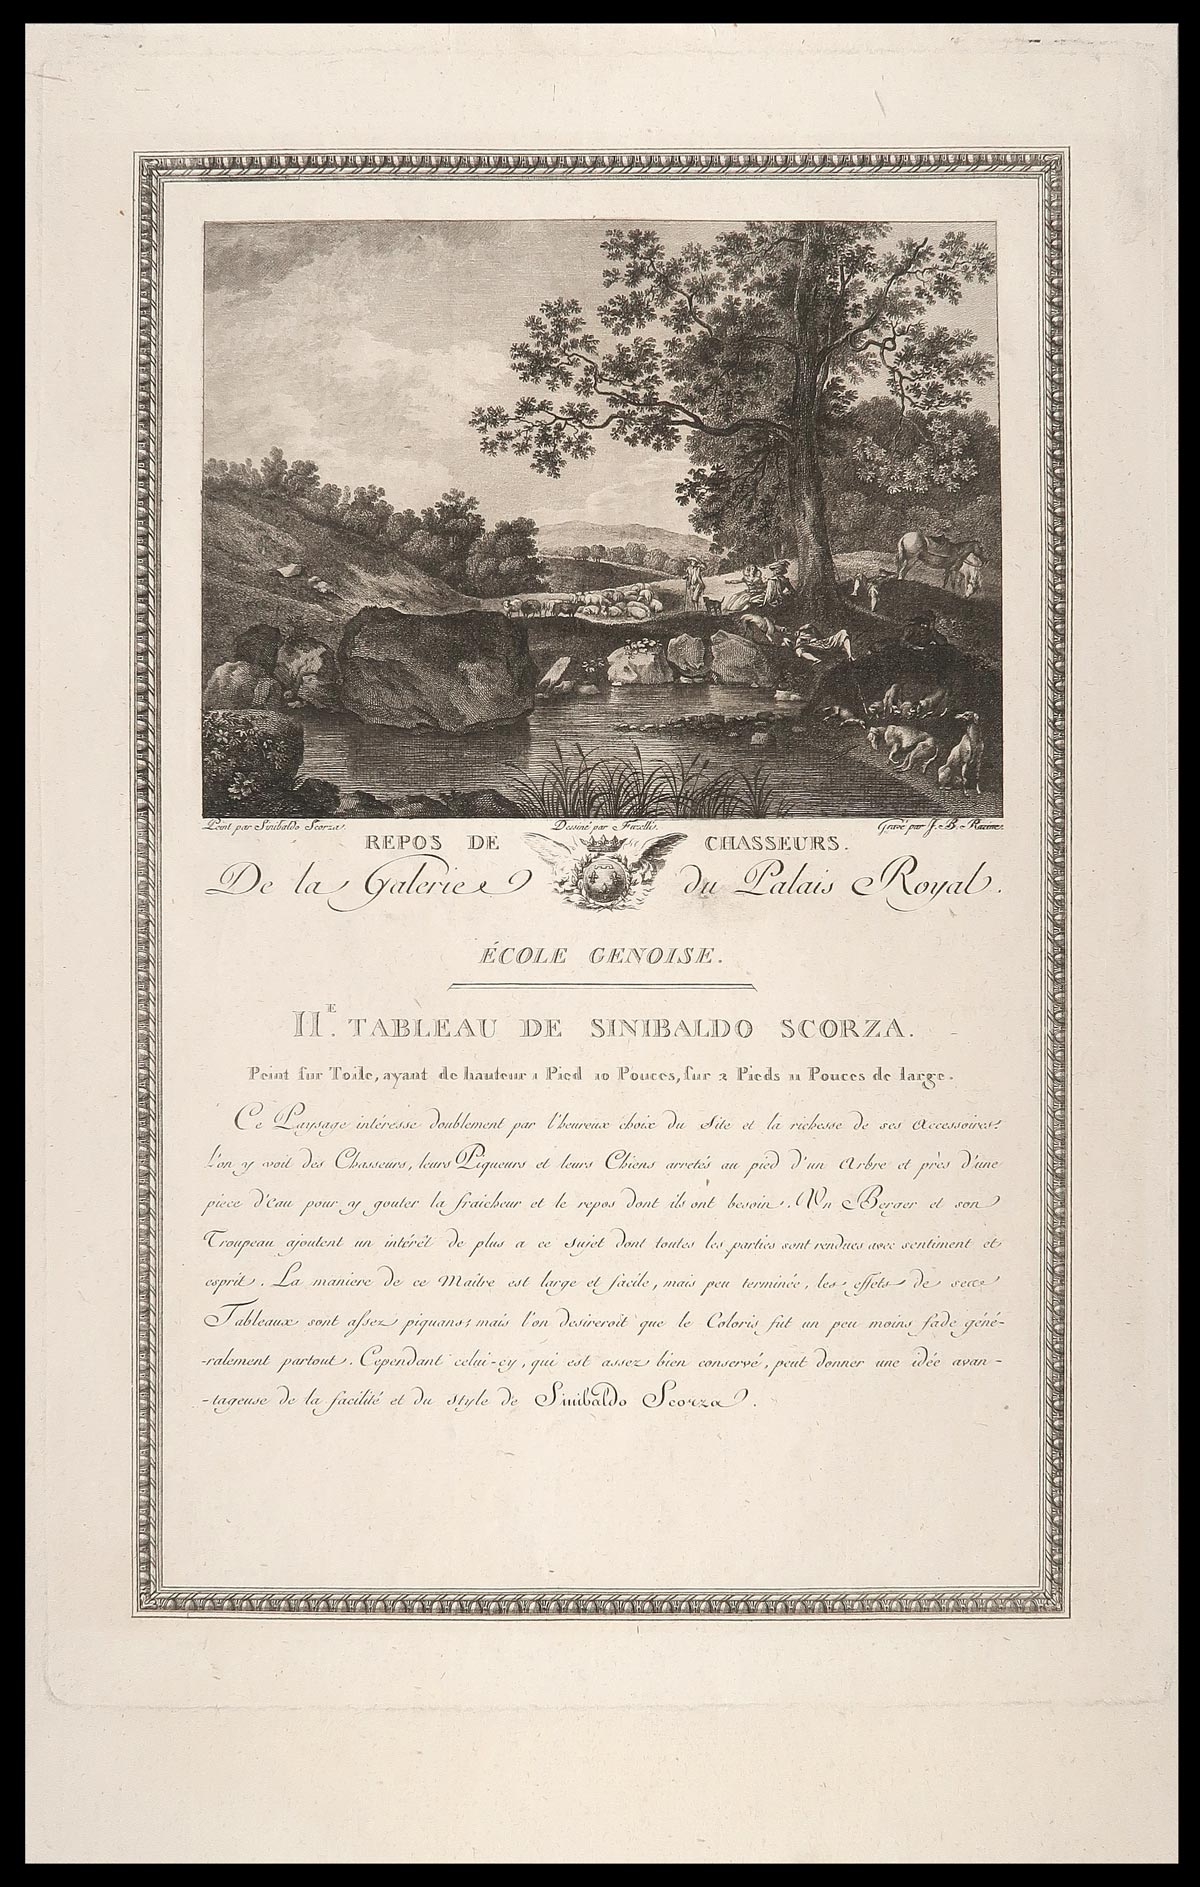 Peint par Sinibaldo Scorza.
Dessiné par Fuzelli.
Gravé par J. B. Racine.
REPOS DE CHASSEURS.
De la Galerie du Palais Royal.
ÉCOLE GENOISE.
II.E TABLEAU DE SINIBALDO SCORZA.
Peint sur Toile, ayant de hauteur 1 Pied 10 Pouces, sur 2 Pieds 11 Pouces de large.
Ce Paysage intéresse doublement par l'heureux choix du Site et la richesse de ses accessoires:
l'on y voit des Chasseurs, leurs Piqueurs et leurs Chiens arretés au pied d'un Arbre et près d'une
piece d'eau pour y gouter la fraicheur et le repos dont ils ont besoin. Un Berger et son
Troupeau ajoutent un intérêt de plus a ce sujet dont toutes les parties sont rendues avec sentiment et
esprit. La maniere de ce Maître est large et facile, mais peu terminée, les effets de ses
Tableaux sont assez piquans; mais l'on desireroit que le Coloris fut un peu moins fade géné-
-ralement partout. Cependant celui-cy, qui est assez bien conservé, peut donner une idée avan-
-tageuse de la facilité et du style de Sinibaldo Scorza.